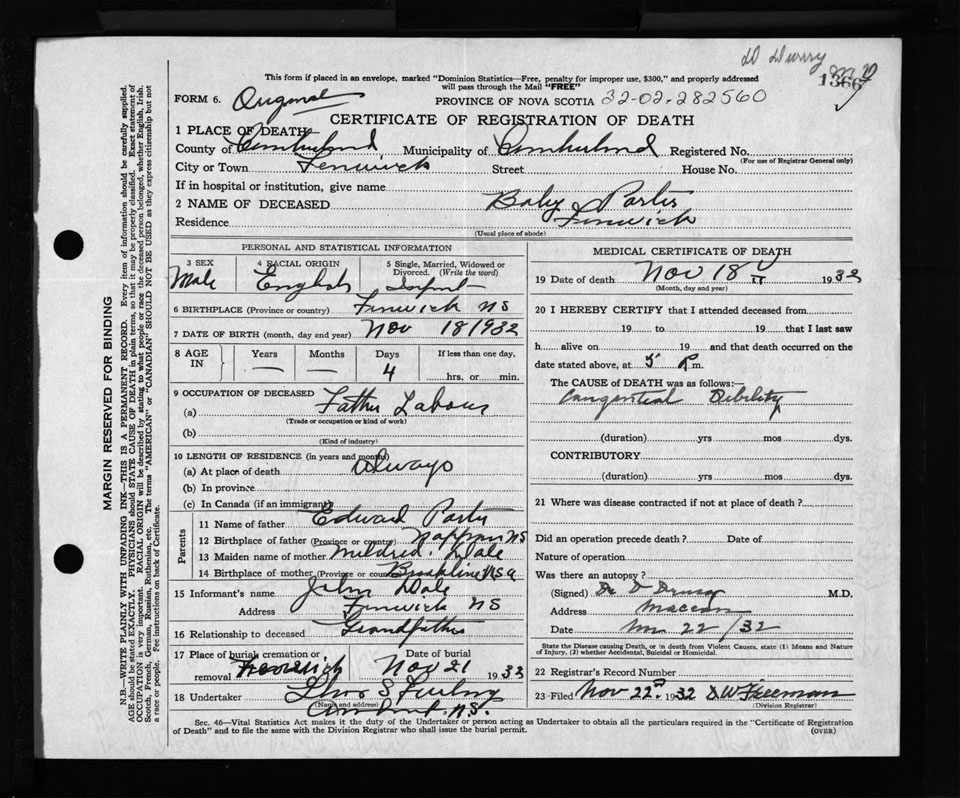 This form if placed in an envelope, marked "Dominion Statistics—Free, penalty for improper use, $300," and properly addressed
will pass through the Mail "FREE"
1366
FORM 6. Original
PROVINCE OF NOVA SCOTIA 32-02-282560
CERTIFICATE OF REGISTRATION OF DEATH
1 PLACE OF DEATH
County of Cumberland Municipality of Cumberland Registered No.
(For use of Registrar General only)
City or Town Fenwick Street House No.
If in hospital or institution, give name
2 NAME OF DECEASED Baby Porter
Residence Fenwick
(Usual place of abode)
PERSONAL AND STATISTICAL INFORMATION
3 SEX 4 RACIAL ORIGIN 5 Single, Married, Widowed or Divorced. (Write the word)
Male English Infant
6 BIRTHPLACE (Province or country) Fenwick NS
7 DATE OF BIRTH (month, day and year) Nov 18 1932
8 AGE IN Years Months Days If less than one day,
— — 4 hrs. or min.
9 OCCUPATION OF DECEASED
(a) Father Labour
(Trade or occupation or kind of work)
(b)
(Kind of industry)
10 LENGTH OF RESIDENCE (in years and months)
(a) At place of death always
(b) In province
(c) In Canada (if an immigrant)
Parents
11 Name of father Edward Porter
12 Birthplace of father (Province or country) Nappan NS
13 Maiden name of mother Mildred Dale
14 Birthplace of mother (Province or country) Brookline USA
15 Informant's name John Dale
Address Fenwick NS
16 Relationship to deceased Grandfather
17 Place of burial, cremation or removal Fenwick Date of burial Nov 21 1932
18 Undertaker
(Name and address)
Amherst, NS.
MEDICAL CERTIFICATE OF DEATH
19 Date of death Nov 18 1932
(Month, day and year)
20 I HEREBY CERTIFY that I attended deceased from
19 to 19 that I last saw
h alive on 19 and that death occurred on the
date stated above, at 5 P m.
The CAUSE OF DEATH was as follows:—
Congenital Debility
(duration) yrs mos dys.
CONTRIBUTORY
(duration) yrs mos dys.
21 Where was disease contracted if not at place of death?
Did an operation precede death? Date of
Nature of operation
Was there an autopsy?
(Signed) Dr D Drury M.D.
Address Maccan
Date Nov 22/32
State the Disease causing Death, or in death from Violent Causes, state (1) Means and Nature of Injury, (2) whether Accidental, Suicidal or Homicidal.
22 Registrar's Record Number
23 Filed Nov 22nd 1932 D W Freeman
(Division Registrar)
Sec. 46—Vital Statistics Act makes it the duty of the Undertaker or person acting as Undertaker to obtain all the particulars required in the "Certificate of Registration
of Death" and to file the same with the Division Registrar who shall issue the burial permit. (OVER)
MARGIN RESERVED FOR BINDING
N.B.—WRITE PLAINLY WITH UNFADING INK—THIS IS A PERMANENT RECORD. Every item of information should be carefully supplied.
AGE should be stated EXACTLY. PHYSICIANS should STATE CAUSE OF DEATH in plain terms, so that it may be properly classified. Exact statement of
OCCUPATION is very important. RACIAL ORIGIN will be described by stating to what people or race the deceased person belonged, whether English, Irish,
Scotch, French, German, Russian, Ruthenian, etc. The terms "AMERICAN" or "CANADIAN" SHOULD NOT BE USED as they express citizenship but not
a race or people. Fee instructions on back of Certificate.